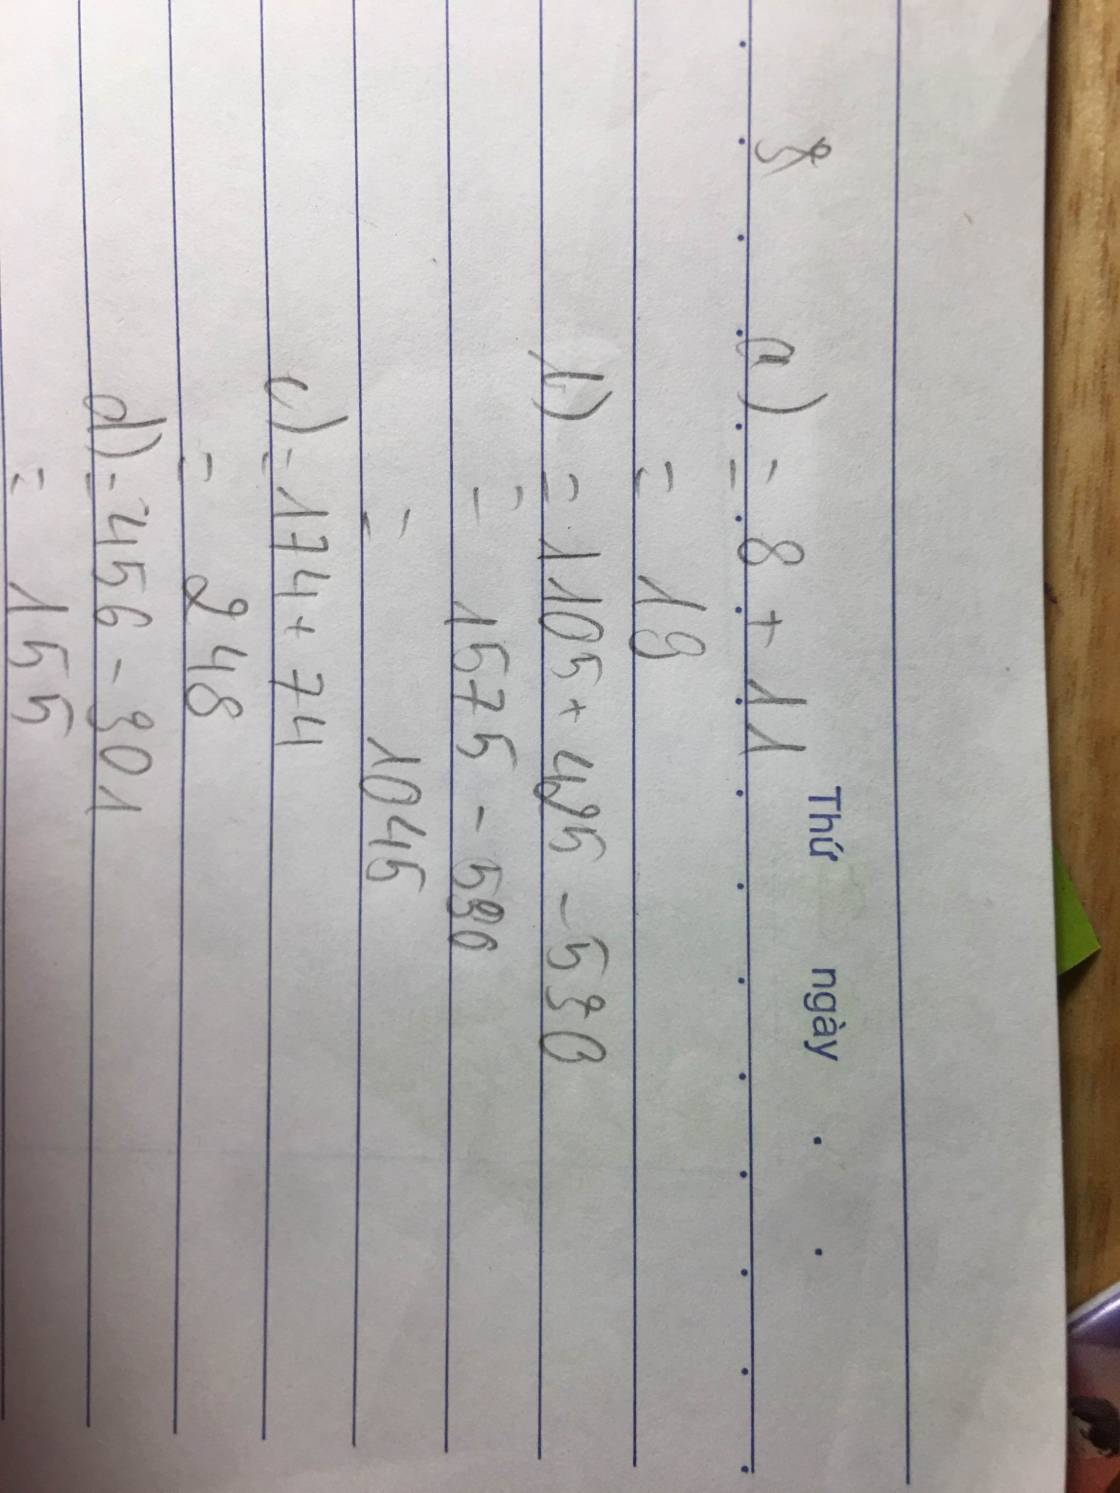 Thứ ngày . .
8 a) = 8 + 11
= 19
b) = 1105 + 425 - 530
= 1575 - 530
= 1045
c) = 174 + 74
= 248
d) = 456 - 301
= 155